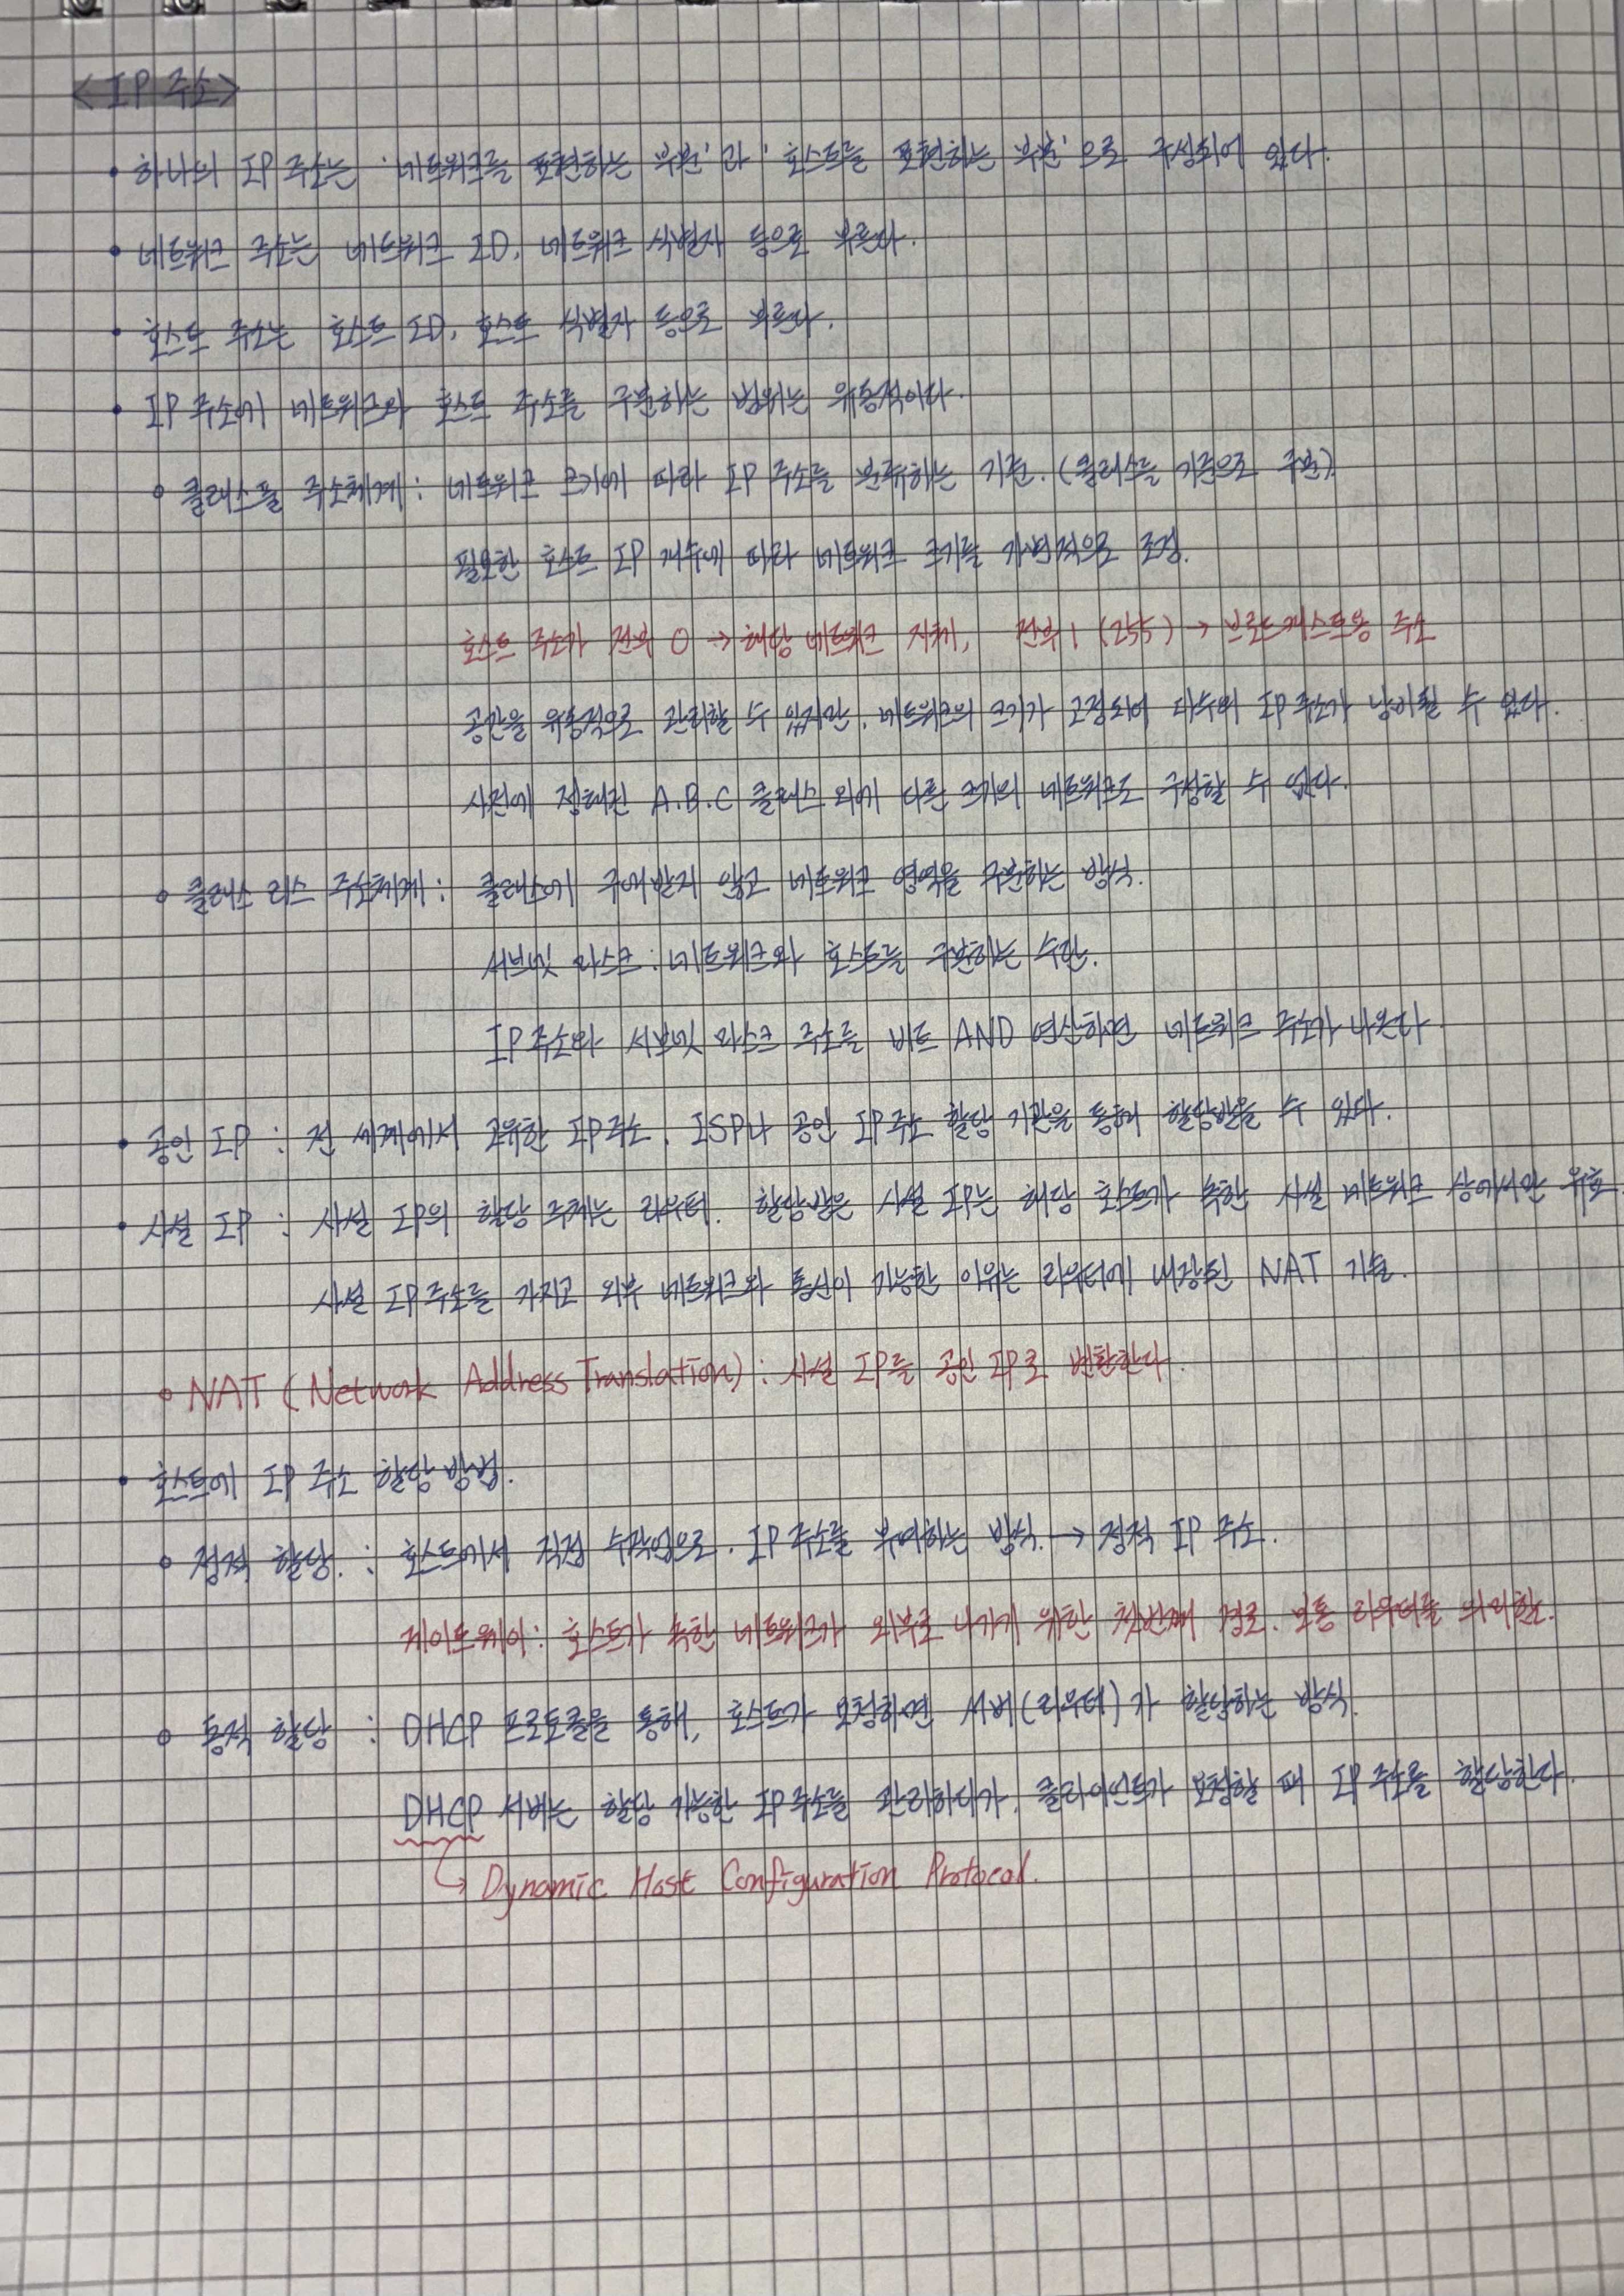 <IP 주소>
• 하나의 IP 주소는 '네트워크를 표현하는 부분'과 '호스트를 표현하는 부분'으로 구성되어 있다.
• 네트워크 주소는 네트워크 ID, 네트워크 식별자 등으로 부른다.
• 호스트 주소는 호스트 ID, 호스트 식별자 등으로 부른다.
• IP 주소에 네트워크와 호스트 주소를 구분하는 범위는 유동적이다.
∘ 클래스풀 주소체계 : 네트워크 크기에 따라 IP 주소를 분류하는 기준. (클래스를 기준으로 구분).
필요한 호스트 IP 개수에 따라 네트워크 크기를 가변적으로 조정.
호스트 주소가 전부 0 → 해당 네트워크 자체, 전부 1 (255) → 브로드캐스트용 주소
공간을 유동적으로 관리할 수 있지만, 네트워크의 크기가 고정되어 다수의 IP 주소가 낭비될 수 있다.
사전에 정해진 A.B.C 클래스 외에 다른 크기의 네트워크도 구성할 수 없다.
∘ 클래스 리스 주소체계 : 클래스에 구애받지 않고 네트워크 영역을 구분하는 방식.
서브넷 마스크 : 네트워크와 호스트를 구분하는 수단.
IP 주소와 서브넷 마스크 주소를 비트 AND 연산하면 네트워크 주소가 나온다.
• 공인 IP : 전 세계에서 고유한 IP 주소. ISP나 공인 IP 주소 할당 기관을 통해 할당받을 수 있다.
• 사설 IP : 사설 IP의 할당 주체는 라우터. 할당받은 사설 IP는 해당 호스트가 속한 사설 네트워크 상에서만 유효.
사설 IP 주소를 가지고 외부 네트워크와 통신이 가능한 이유는 라우터에 내장된 NAT 기술.
∘ NAT (Network Address Translation) : 사설 IP를 공인 IP로 변환한다.
• 호스트에 IP 주소 할당 방법.
∘ 정적 할당. : 호스트에서 직접 수작업으로. IP 주소를 부여하는 방식. → 정적 IP 주소.
게이트웨이 : 호스트가 속한 네트워크가 외부로 나가기 위한 첫번째 경로. 보통 라우터를 의미함.
∘ 동적 할당 : DHCP 프로토콜을 통해, 호스트가 요청하면 서버(라우터)가 할당하는 방식.
DHCP 서버는 할당 가능한 IP 주소를 관리하다가, 클라이언트가 요청할 때 IP 주소를 할당한다.
↳ Dynamic Host Configuration Protocal.